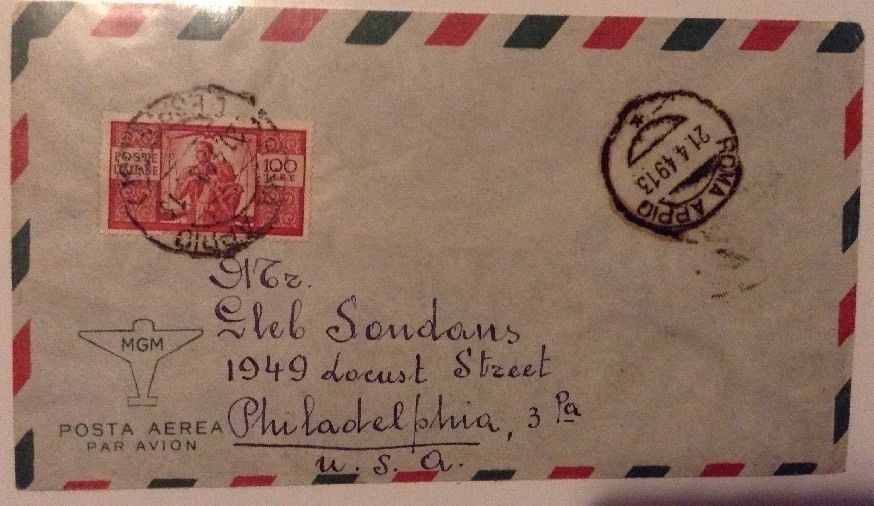 POSTE
ITALIANE
100
LIRE
ROMA APPIO
21.4.49.13
Mr.
Gleb Sondans
1949 Locust Street
Philadelphia, 3 Pa
U.S.A.
MGM
POSTA AEREA
PAR AVION